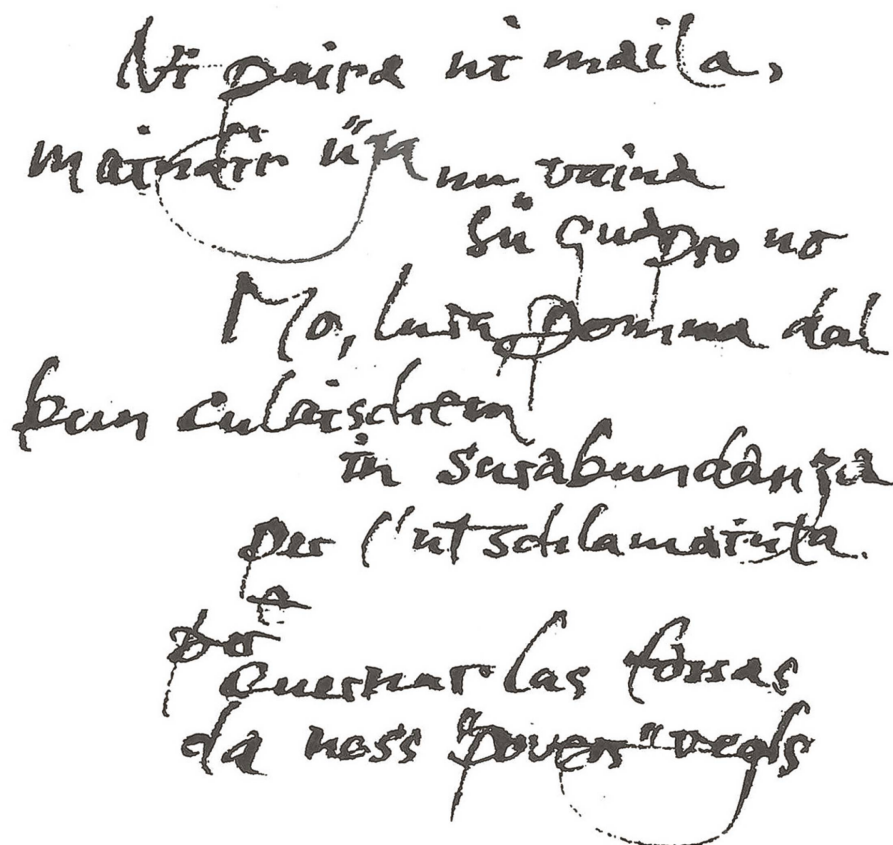 Ni paira ni maila,
maindir üja nun vaina
sü quapro no
Mo, pomma dal
bun culaischem
in surabundanza
per l'utschlamainta.
e
po
cuernar las fossas
da noss "povers" vegls